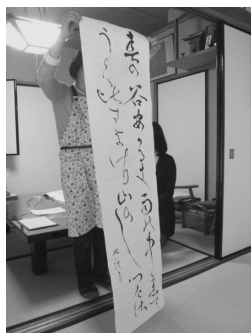 春の谷あかるき雨の中にして
うぐひすなけり山のしづけさ